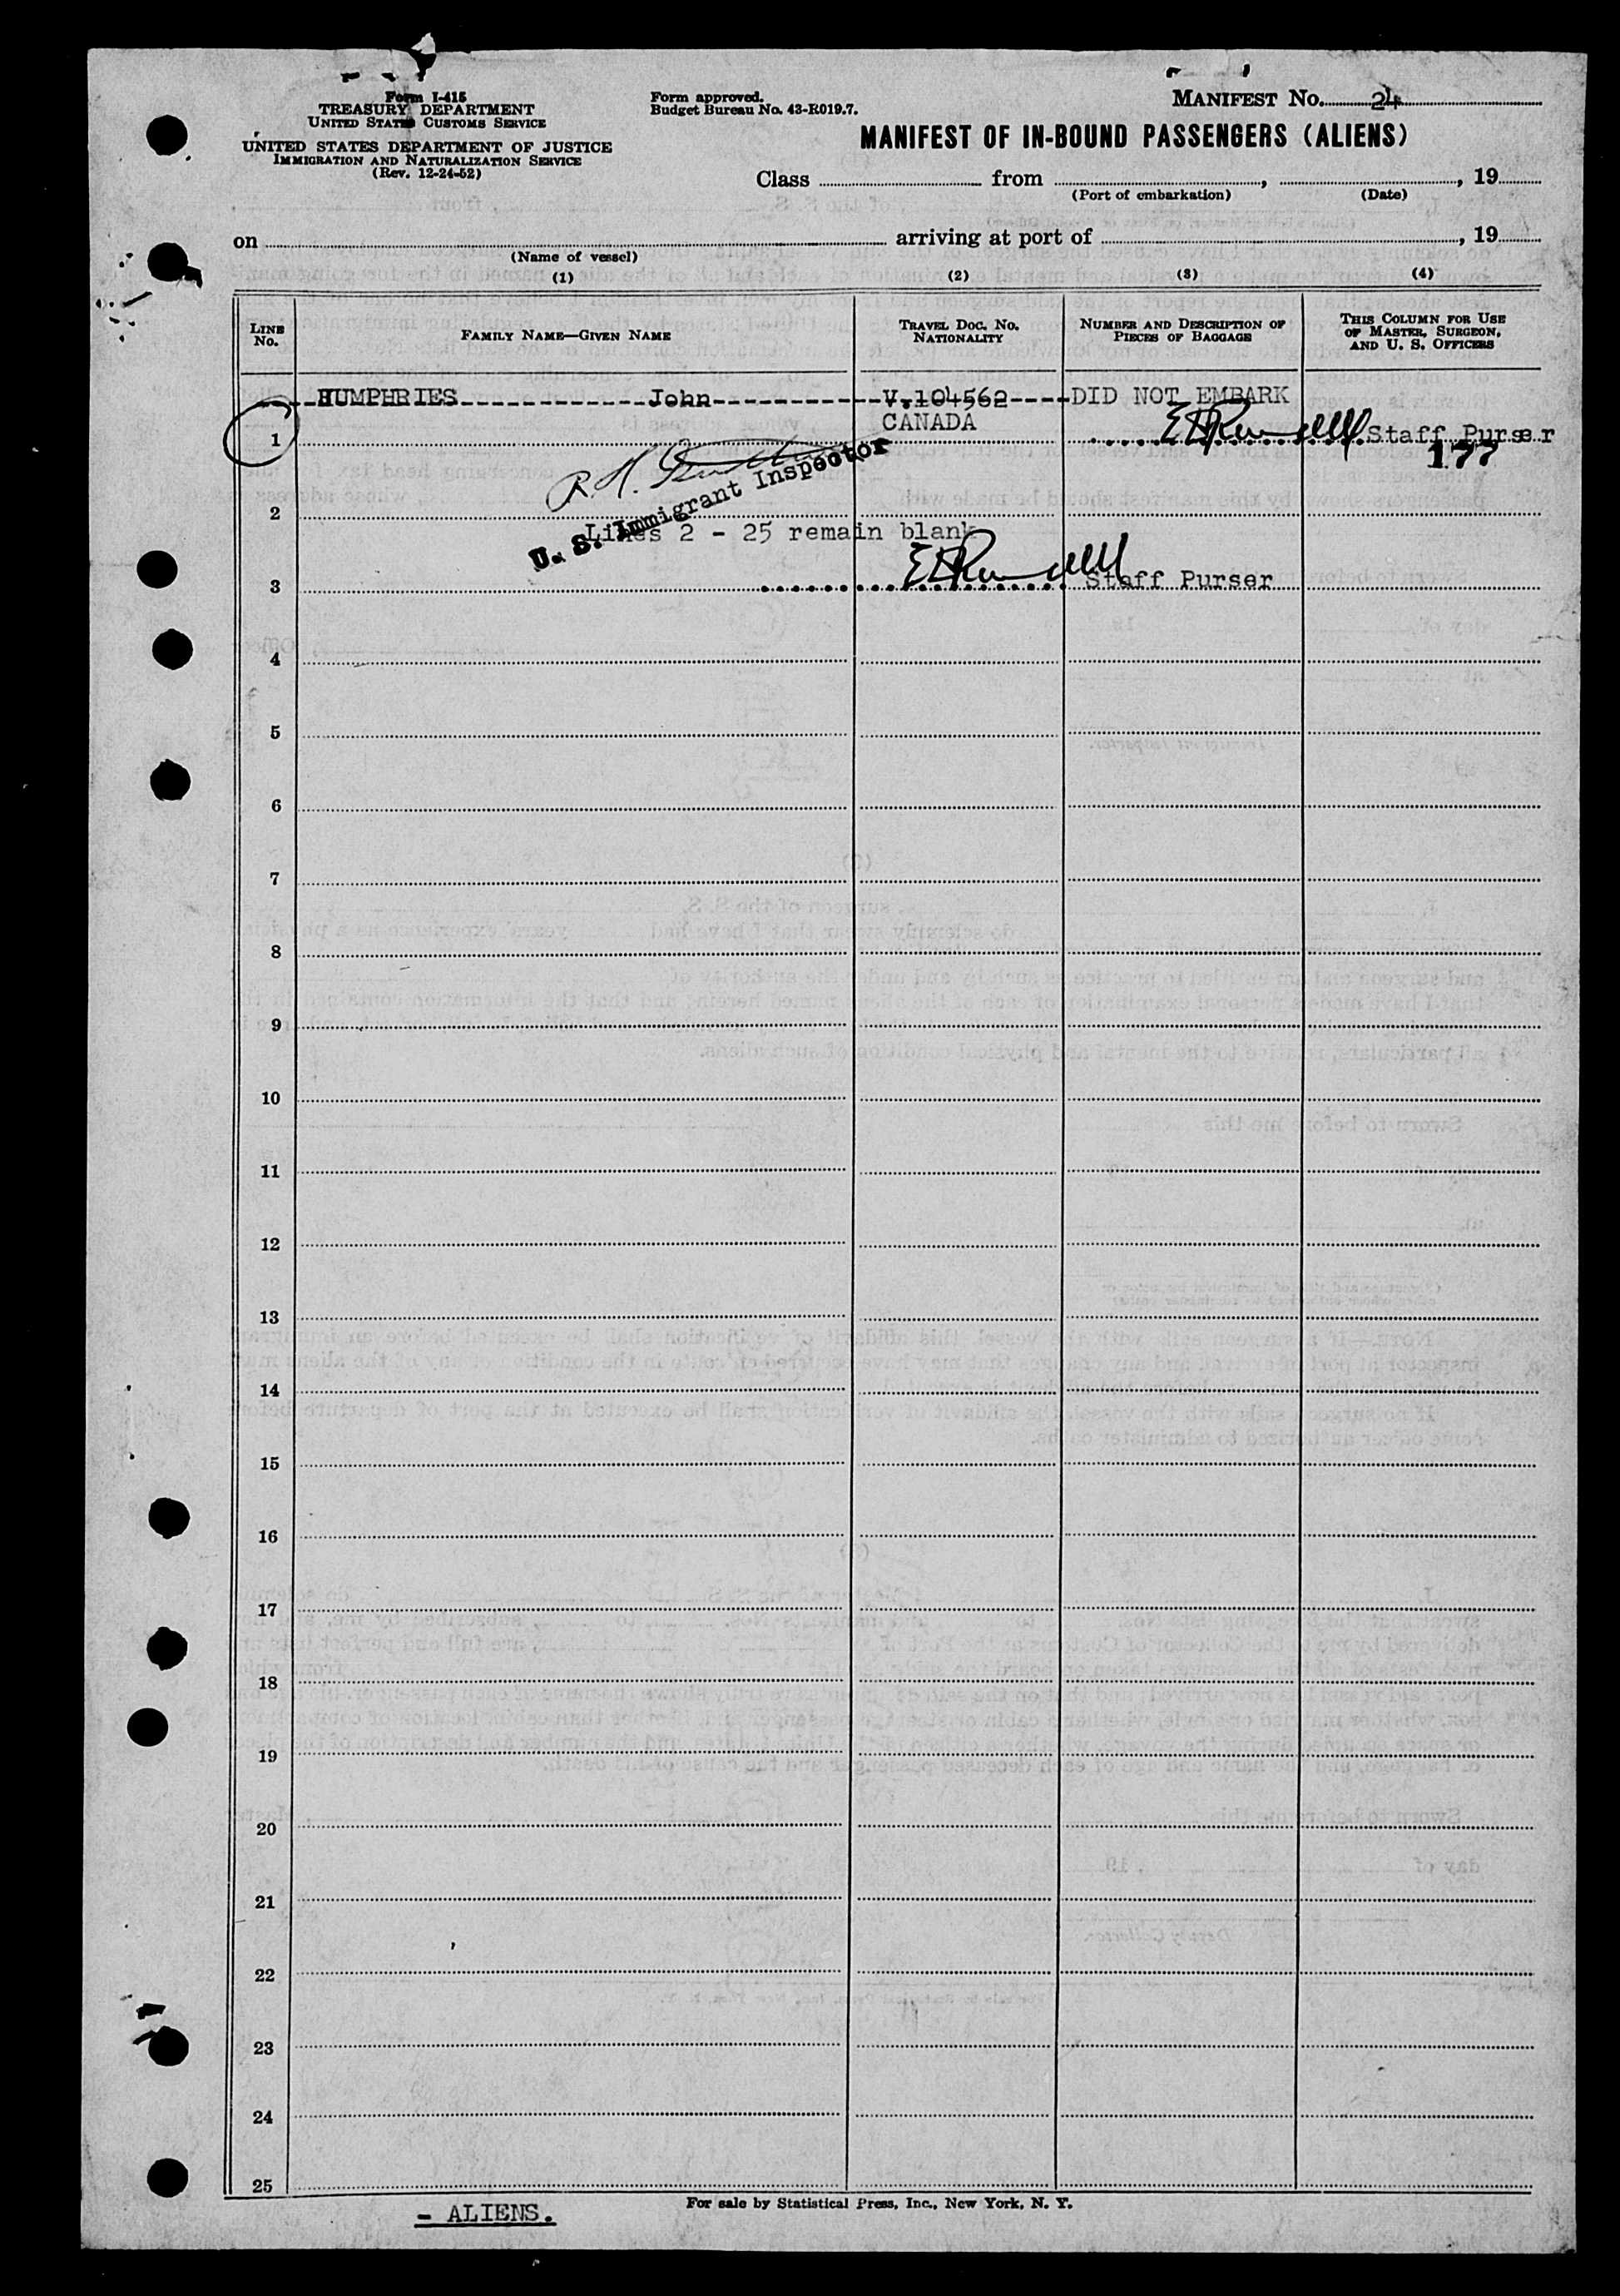 Form I-415
TREASURY DEPARTMENT
UNITED STATES CUSTOMS SERVICE
UNITED STATES DEPARTMENT OF JUSTICE
IMMIGRATION AND NATURALIZATION SERVICE
(Rev. 12-24-52)
Form approved.
Budget Bureau No. 43-R019.7.
MANIFEST No. 24
MANIFEST OF IN-BOUND PASSENGERS (ALIENS)
Class from , , 19
(Port of embarkation) (Date)
on arriving at port of , 19
(Name of vessel)
(1) (2) (3) (4)
LINE No. FAMILY NAME—GIVEN NAME TRAVEL DOC. NO. NATIONALITY NUMBER AND DESCRIPTION OF PIECES OF BAGGAGE THIS COLUMN FOR USE OF MASTER, SURGEON, AND U. S. OFFICERS
HUMPHRIES John V.104562 DID NOT EMBARK
CANADA
1 Staff Purser
177
R. H.
U. S. Immigrant Inspector
2
Lines 2 - 25 remain blank
3 Staff Purser
4
5
6
7
8
9
10
11
12
13
14
15
16
17
18
19
20
21
22
23
24
25
For sale by Statistical Press, Inc., New York, N. Y.
- ALIENS.